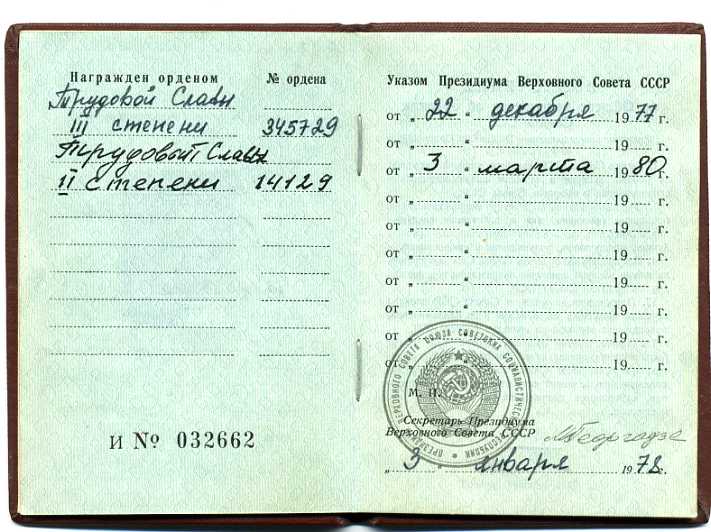 Награжден орденом № ордена
Трудовой Славы
III степени 345729
Трудовой Славы
II степени 14129
И № 032662
Указом Президиума Верховного Совета СССР
от „ 22 " декабря 1977 г.
от „ 3 " марта 1980 г.
от „ " 19 г.
от „ " 19 г.
от „ " 19 г.
от „ " 19 г.
от „ " 19 г.
от „ " 19 г.
от „ " 19 г.
от „ " 19 г.
М. П.
Секретарь Президиума
Верховного Совета СССР
МГеоргадзе
„ 3 " января 1978 г.
ПРЕЗИДИУМ ВЕРХОВНОГО СОВЕТА СОЮЗА СОВЕТСКИХ СОЦИАЛИСТИЧЕСКИХ РЕСПУБЛИК